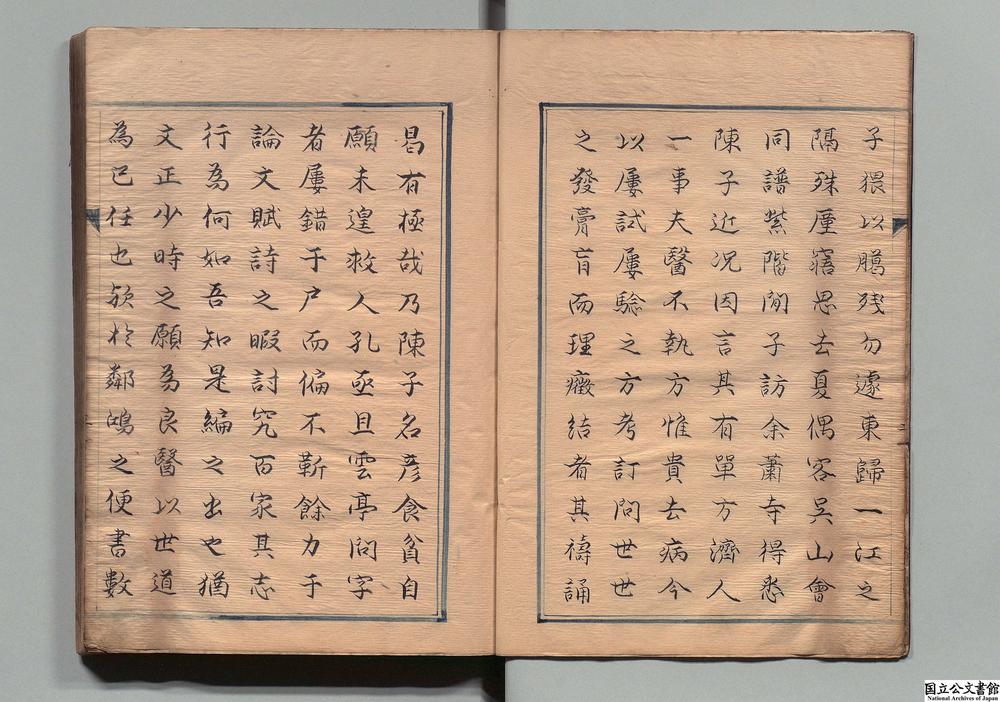 子猥以臈殘勿遽東歸一江之
隔殊厪寤思去夏偶客吳山會
同譜紫階閒子訪余蕭寺得悉
陳子近况因言其有單方濟人
一事夫醫不執方惟貴去病今
以屢試屢驗之方考訂問世世
之發膏肓而理癥結者其禱誦
曷有極哉乃陳子名彦食貧自
願未遑救人孔亟且雲亭問字
者屢錯于户而偏不靳餘力于
論文賦詩之暇討究百家其志
行為何如吾知是編之出也猶
文正少時之願為良醫以世道
為已任也欤於鄰鴻之便書數
国立公文書館
National Archives of Japan